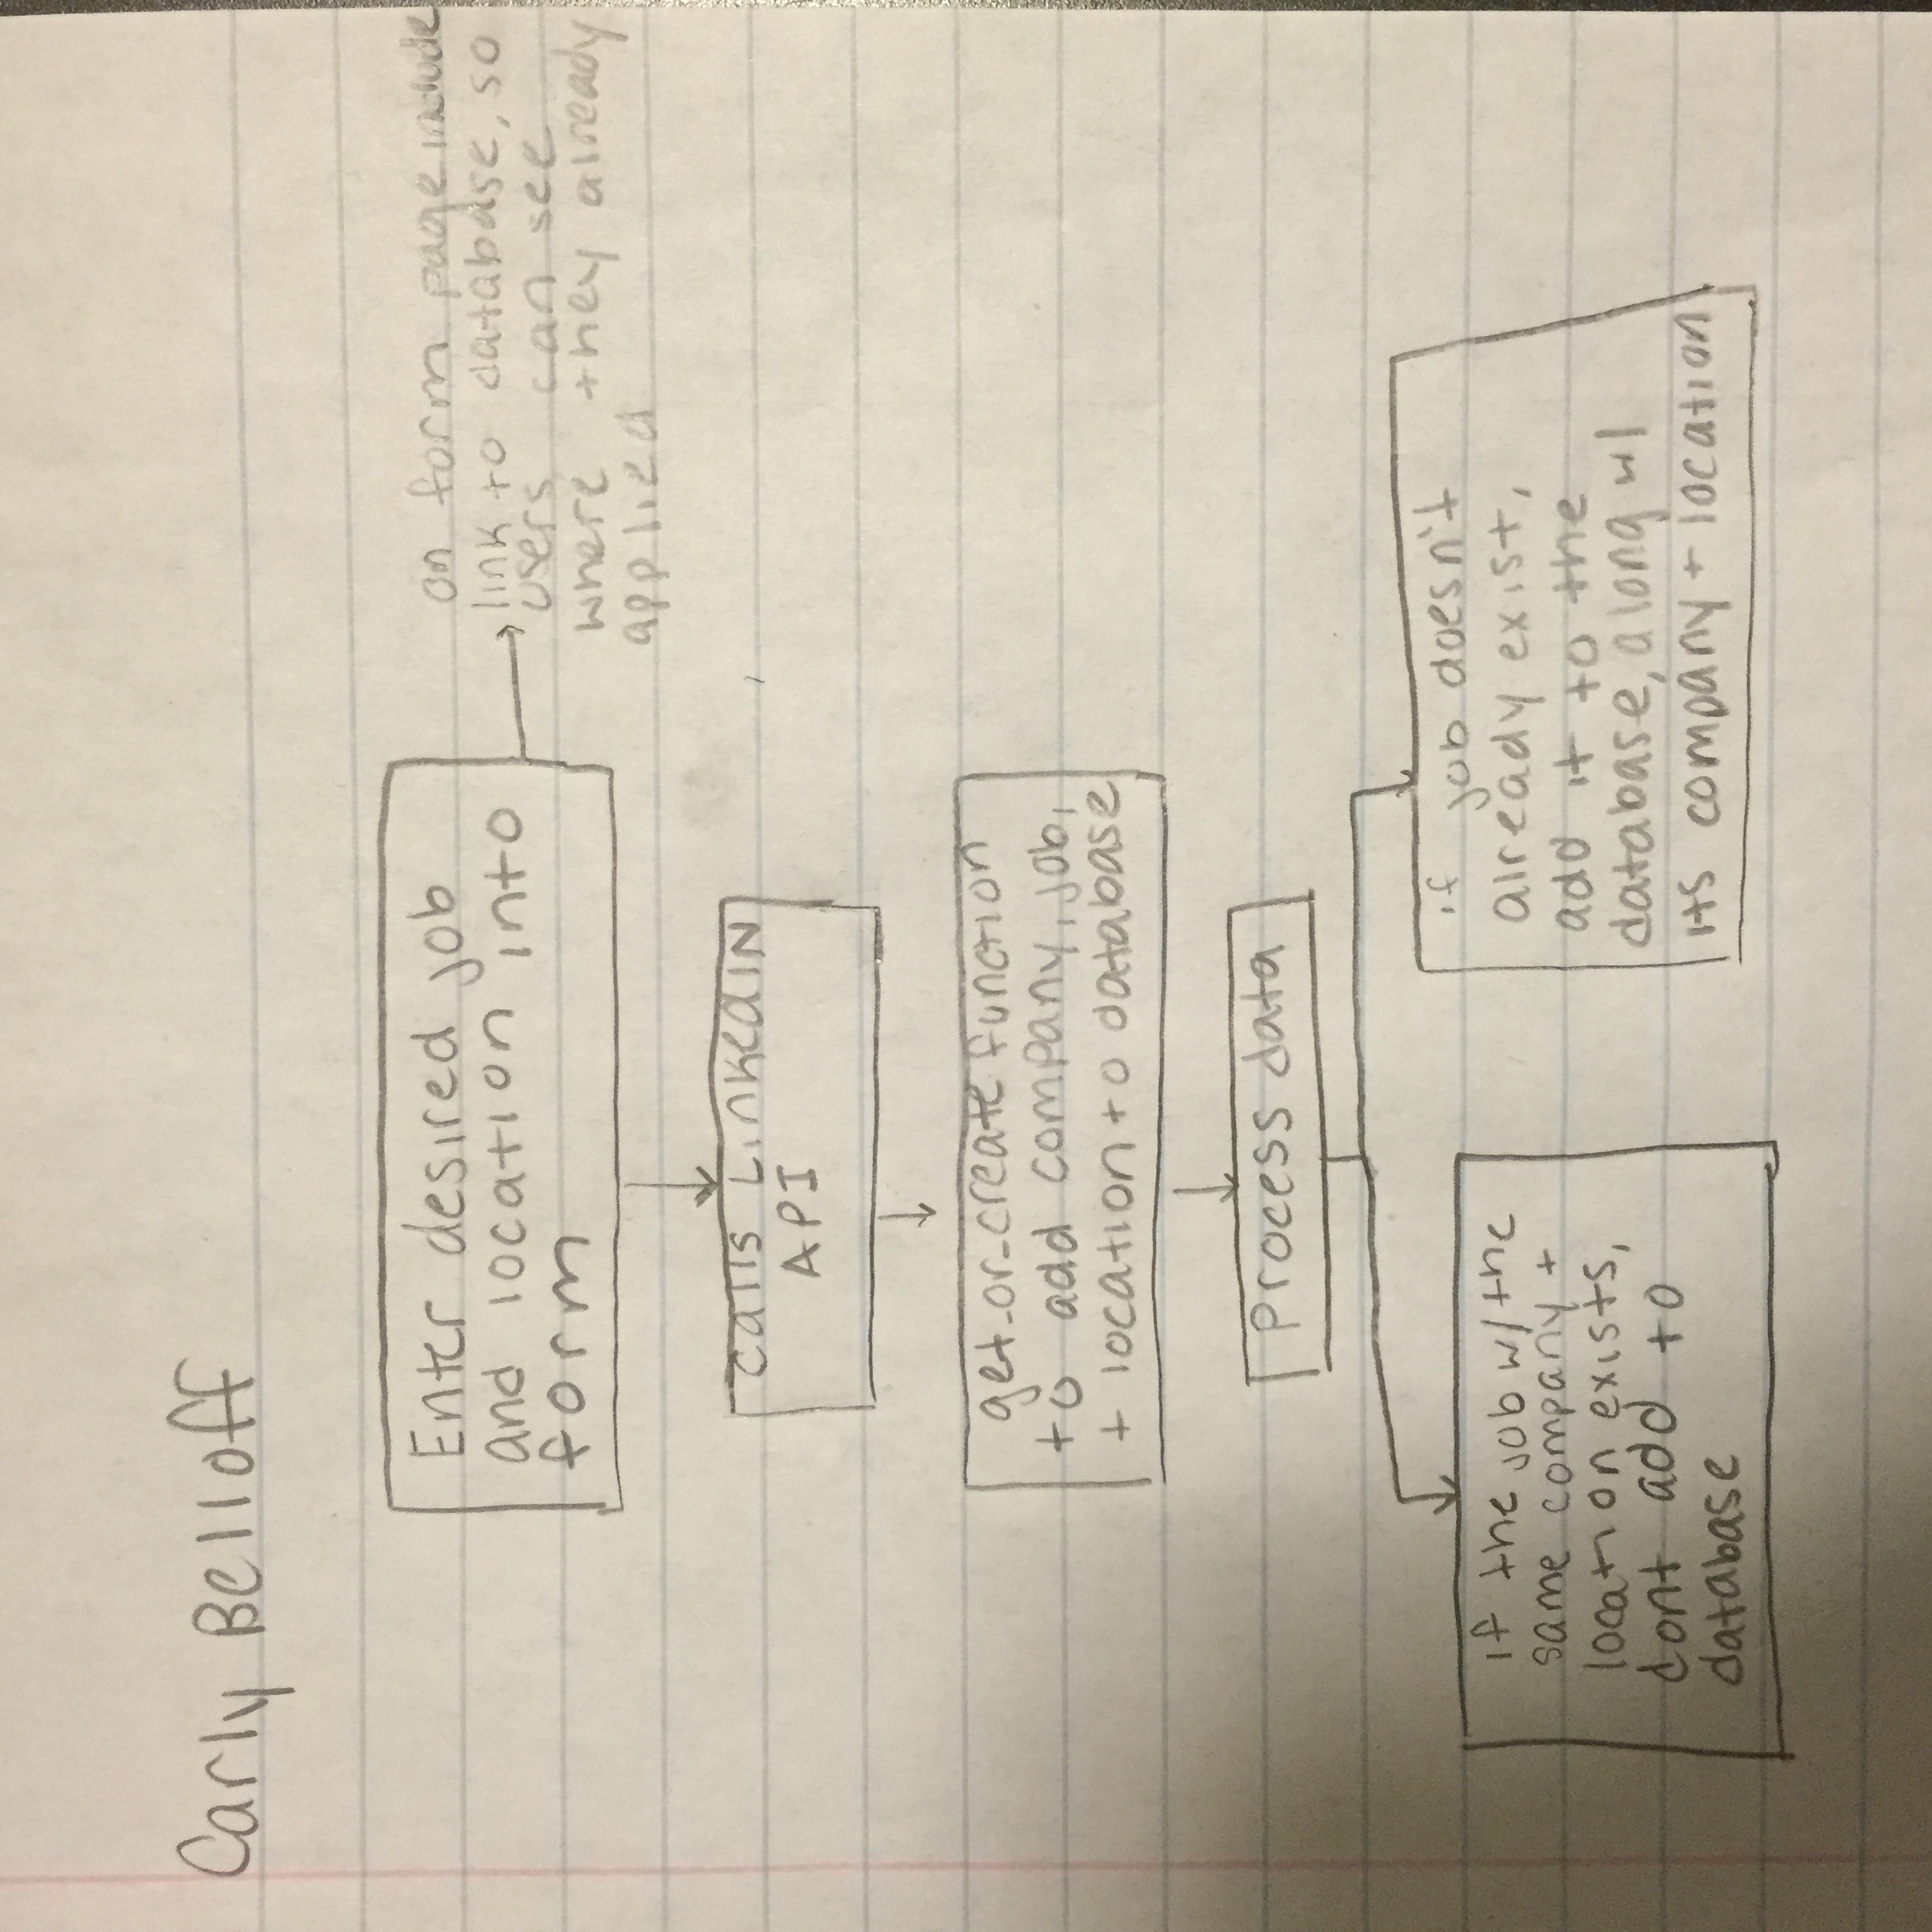 Carly Belloff
Enter desired job
and location into
form
on form page include
link to database, so
users can see
where they already
applied
calls LinkedIN
API
get_or_create function
to add company, job,
+ location to database
Process data
if the job w/ the
same company +
location exists,
dont add to
database
if job doesn't
already exist,
add it to the
database, along w/
its company + location